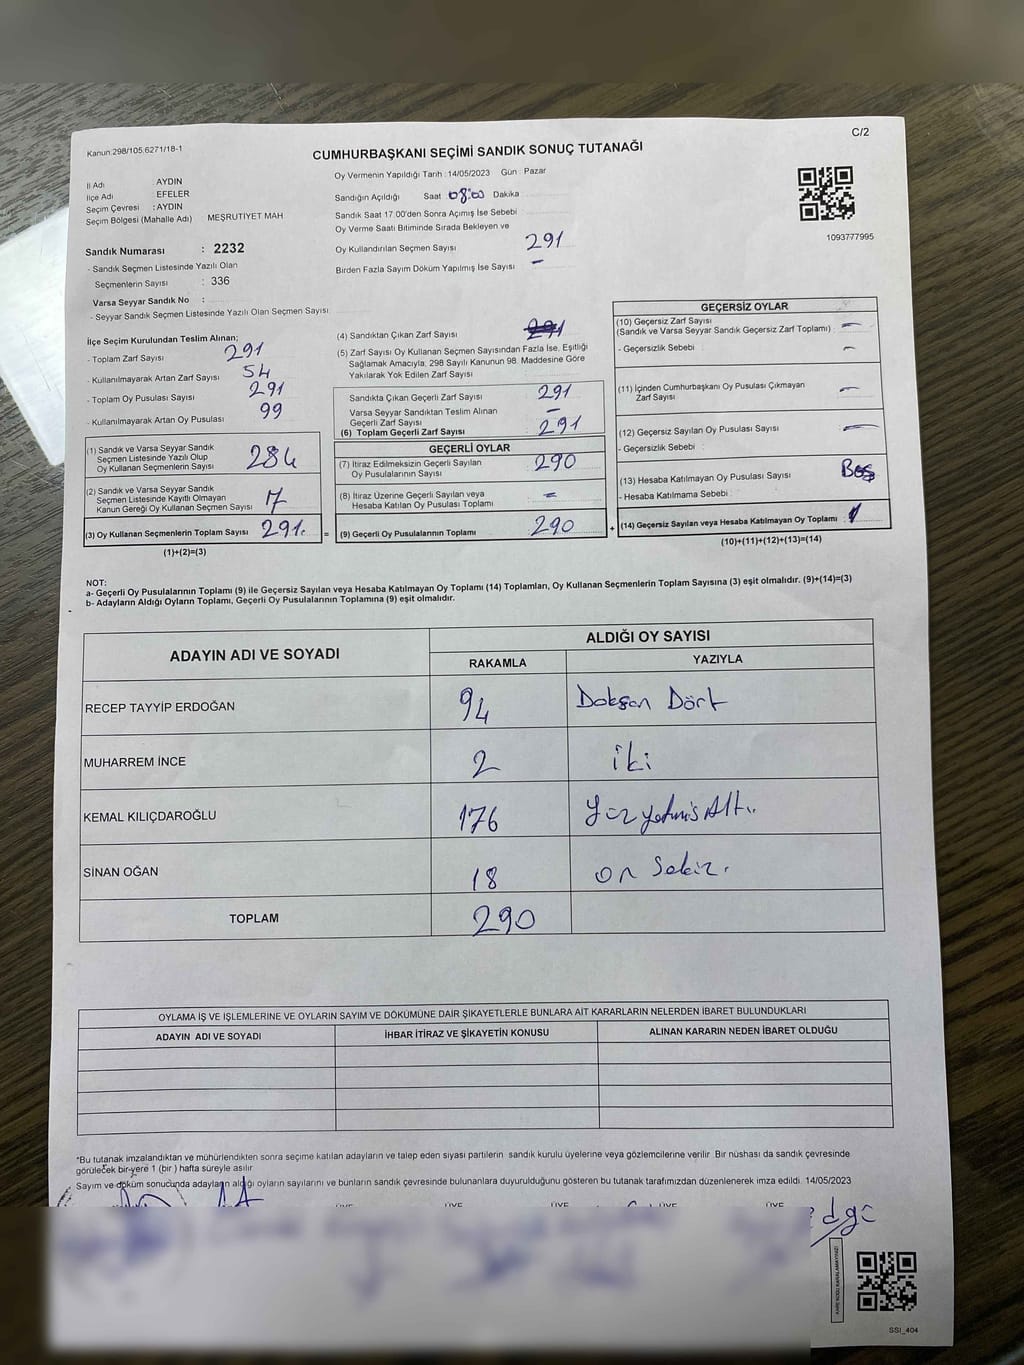 C/2
Kanun:298/105.6271/18-1
CUMHURBAŞKANI SEÇİMİ SANDIK SONUÇ TUTANAĞI
İl Adı AYDIN
İlçe Adı EFELER
Seçim Çevresi : AYDIN
Seçim Bölgesi (Mahalle Adı) MEŞRUTİYET MAH
Sandık Numarası : 2232
- Sandık Seçmen Listesinde Yazılı Olan
Seçmenlerin Sayısı : 336
Varsa Seyyar Sandık No :
- Seyyar Sandık Seçmen Listesinde Yazılı Olan Seçmen Sayısı
Oy Vermenin Yapıldığı Tarih : 14/05/2023 Gün : Pazar
Sandığın Açıldığı Saat 08:00 Dakika
Sandık Saat 17.00'den Sonra Açımış İse Sebebi
Oy Verme Saati Bitiminde Sırada Bekleyen ve
Oy Kullandırılan Seçmen Sayısı 291
Birden Fazla Sayım Döküm Yapılmış İse Sayısı –
1093777995
İlçe Seçim Kurulundan Teslim Alınan;
- Toplam Zarf Sayısı 291
- Kullanılmayarak Artan Zarf Sayısı 54
- Toplam Oy Pusulası Sayısı 291
- Kullanılmayarak Artan Oy Pusulası 99
(1) Sandık ve Varsa Seyyar Sandık
Seçmen Listesinde Yazılı Olup
Oy Kullanan Seçmenlerin Sayısı 284
(2) Sandık ve Varsa Seyyar Sandık
Seçmen Listesinde Kayıtlı Olmayan
Kanun Gereği Oy Kullanan Seçmen Sayısı 7
(3) Oy Kullanan Seçmenlerin Toplam Sayısı 291. =
(1)+(2)=(3)
(4) Sandıktan Çıkan Zarf Sayısı 291
(5) Zarf Sayısı Oy Kullanan Seçmen Sayısından Fazla İse, Eşitliği
Sağlamak Amacıyla, 298 Sayılı Kanunun 98. Maddesine Göre
Yakılarak Yok Edilen Zarf Sayısı
Sandıkta Çıkan Geçerli Zarf Sayısı 291
Varsa Seyyar Sandıktan Teslim Alınan
Geçerli Zarf Sayısı –
(6) Toplam Geçerli Zarf Sayısı 291
GEÇERLİ OYLAR
(7) İtiraz Edilmeksizin Geçerli Sayılan
Oy Pusulalarının Sayısı 290
(8) İtiraz Üzerine Geçerli Sayılan veya
Hesaba Katılan Oy Pusulası Toplamı –
(9) Geçerli Oy Pusulalarının Toplamı 290 +
GEÇERSİZ OYLAR
(10) Geçersiz Zarf Sayısı
(Sandık ve Varsa Seyyar Sandık Geçersiz Zarf Toplamı) –
- Geçersizlik Sebebi –
(11) İçinden Cumhurbaşkanı Oy Pusulası Çıkmayan
Zarf Sayısı –
(12) Geçersiz Sayılan Oy Pusulası Sayısı –
- Geçersizlik Sebebi
(13) Hesaba Katılmayan Oy Pusulası Sayısı Boş
- Hesaba Katılmama Sebebi
(14) Geçersiz Sayılan veya Hesaba Katılmayan Oy Toplamı 1
(10)+(11)+(12)+(13)=(14)
NOT:
a- Geçerli Oy Pusulalarının Toplamı (9) ile Geçersiz Sayılan veya Hesaba Katılmayan Oy Toplamı (14) Toplamları, Oy Kullanan Seçmenlerin Toplam Sayısına (3) eşit olmalıdır. (9)+(14)=(3)
b- Adayların Aldığı Oyların Toplamı, Geçerli Oy Pusulalarının Toplamına (9) eşit olmalıdır.
ADAYIN ADI VE SOYADI
ALDIĞI OY SAYISI
RAKAMLA YAZIYLA
RECEP TAYYİP ERDOĞAN 94 Doksan Dört
MUHARREM İNCE 2 iki
KEMAL KILIÇDAROĞLU 176 Yüz yetmiş Altı
SİNAN OĞAN 18 on Sekiz.
TOPLAM 290
OYLAMA İŞ VE İŞLEMLERİNE VE OYLARIN SAYIM VE DÖKÜMÜNE DAİR ŞİKAYETLERLE BUNLARA AİT KARARLARIN NELERDEN İBARET BULUNDUKLARI
ADAYIN ADI VE SOYADI İHBAR İTİRAZ VE ŞİKAYETİN KONUSU ALINAN KARARIN NEDEN İBARET OLDUĞU
*Bu tutanak imzalandıktan ve mühürlendikten sonra seçime katılan adayların ve talep eden siyasi partilerin sandık kurulu üyelerine veya gözlemcilerine verilir. Bir nüshası da sandık çevresinde
görülecek bir yere 1 (bir ) hafta süreyle asılır
Sayım ve döküm sonucunda adayların aldığı oyların sayılarını ve bunların sandık çevresinde bulunanlara duyurulduğunu gösteren bu tutanak tarafımızdan düzenlenerek imza edildi. 14/05/2023
ÜYE ÜYE ÜYE ÜYE ÜYE
SSI_404